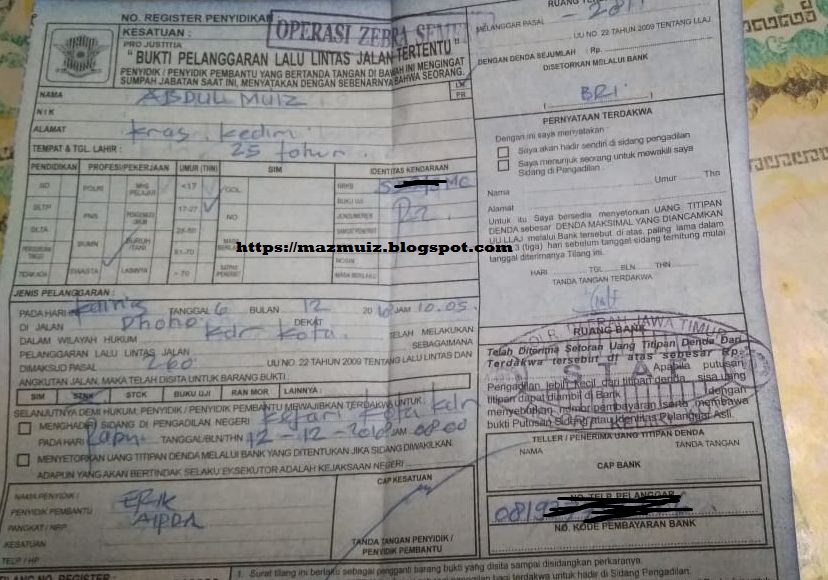 NO. REGISTER PENYIDIKAN
KESATUAN :
OPERASI ZEBRA
PRO JUSTITIA
" BUKTI PELANGGARAN LALU LINTAS JALAN TERTENTU "
PENYIDIK / PENYIDIK PEMBANTU YANG BERTANDA TANGAN DI BAWAH INI MENGINGAT
SUMPAH JABATAN SAAT INI, MENYATAKAN DENGAN SEBENARNYA BAHWA SEORANG.
NAMA ABDUL MUIZ
LK
PR
NIK
ALAMAT Kras. Kediri
TEMPAT & TGL. LAHIR : 25 tahun
PENDIDIKAN PROFESI/PEKERJAAN UMUR (THN) SIM IDENTITAS KENDARAAN
SD POLRI MHS PELAJAR <17 GOL
SLTP PNS 17-27 NO R2
SLTA
BUMN BURUH /TANI
SWASTA LAINNYA > 70
https://mazmuiz.blogspot.com
JENIS PELANGGARAN :
PADA HARI Kamis TANGGAL 6 BULAN 12 JAM 10.05.
DI JALAN Dhoho DEKAT
DALAM WILAYAH HUKUM Kdr Kota. TELAH MELAKUKAN
PELANGGARAN LALU LINTAS JALAN SEBAGAIMANA
DIMAKSUD PASAL 260 UU NO. 22 TAHUN 2009 TENTANG LALU LINTAS DAN
ANGKUTAN JALAN. MAKA TELAH DISITA UNTUK BARANG BUKTI :
SIM STNK STCK BUKU UJI RAN MOR LAINNYA :
SELANJUTNYA DEMI HUKUM. PENYIDIK / PENYIDIK PEMBANTU MEWAJIBKAN TERDAKWA UNTUK :
MENGHADIRI SIDANG DI PENGADILAN NEGERI Kejari Kota Kdr
PADA HARI TANGGAL/BLN/THN 12 - 12 - JAM 08.00
MENYETORKAN UANG TITIPAN DENDA MELALUI BANK YANG DITENTUKAN JIKA SIDANG DIWAKILKAN.
ADAPUN YANG AKAN BERTINDAK SELAKU EKSEKUTOR ADALAH KEJAKSAAN NEGERI
NAMA PENYIDIK / ERIK
PENYIDIK PEMBANTU
PANGKAT / NRP AIPDA
KESATUAN
TELP / HP
CAP KESATUAN
TANDA TANGAN PENYIDIK /
PENYIDIK PEMBANTU
RUANG
MELANGGAR PASAL
UU NO. 22 TAHUN 2009 TENTANG LLAJ.
DENGAN DENDA SEJUMLAH : Rp.
DISETORKAN MELALUI BANK
BRI
PERNYATAAN TERDAKWA
Dengan ini saya menyatakan :
Saya akan hadir sendiri di sidang pengadilan
Saya menunjuk seorang untuk mewakili saya
di Sidang Pengadilan :
Nama Umur Thn
Alamat
Untuk itu Saya bersedia menyetorkan UANG TITIPAN
DENDA sebesar DENDA MAKSIMAL YANG DIANCAMKAN
UU LLAJ melalui Bank tersebut di atas, paling lama dalam
3 (tiga) hari sebelum tanggal sidang terhitung mulai
tanggal diterimanya Tilang ini.
HARI TGL BLN THN
TANDA TANGAN TERDAKWA
JAWA TIMUR
RUANG BANK
Telah Diterima Setoran Uang Titipan Denda Dari
Terdakwa tersebut di atas sebesar Rp.
Apabila putusan
Pengadilan lebih kecil dari titipan denda sisa uang
titipan dapat diambil di Bank dengan
menyebutkan nomor pembayaran serta membawa
bukti Putusan Sidang atau Identitas Pelanggar Asli.
TELLER / PENERIMA UANG TITIPAN DENDA
NAMA TANDA TANGAN
CAP BANK
NO. TELP. PELANGGAR
NO. KODE PEMBAYARAN BANK
TILANG NO. REGISTER
1. Surat tilang ini berlaku sebagai pengganti barang bukti yang disita sampai disidangkan perkaranya.